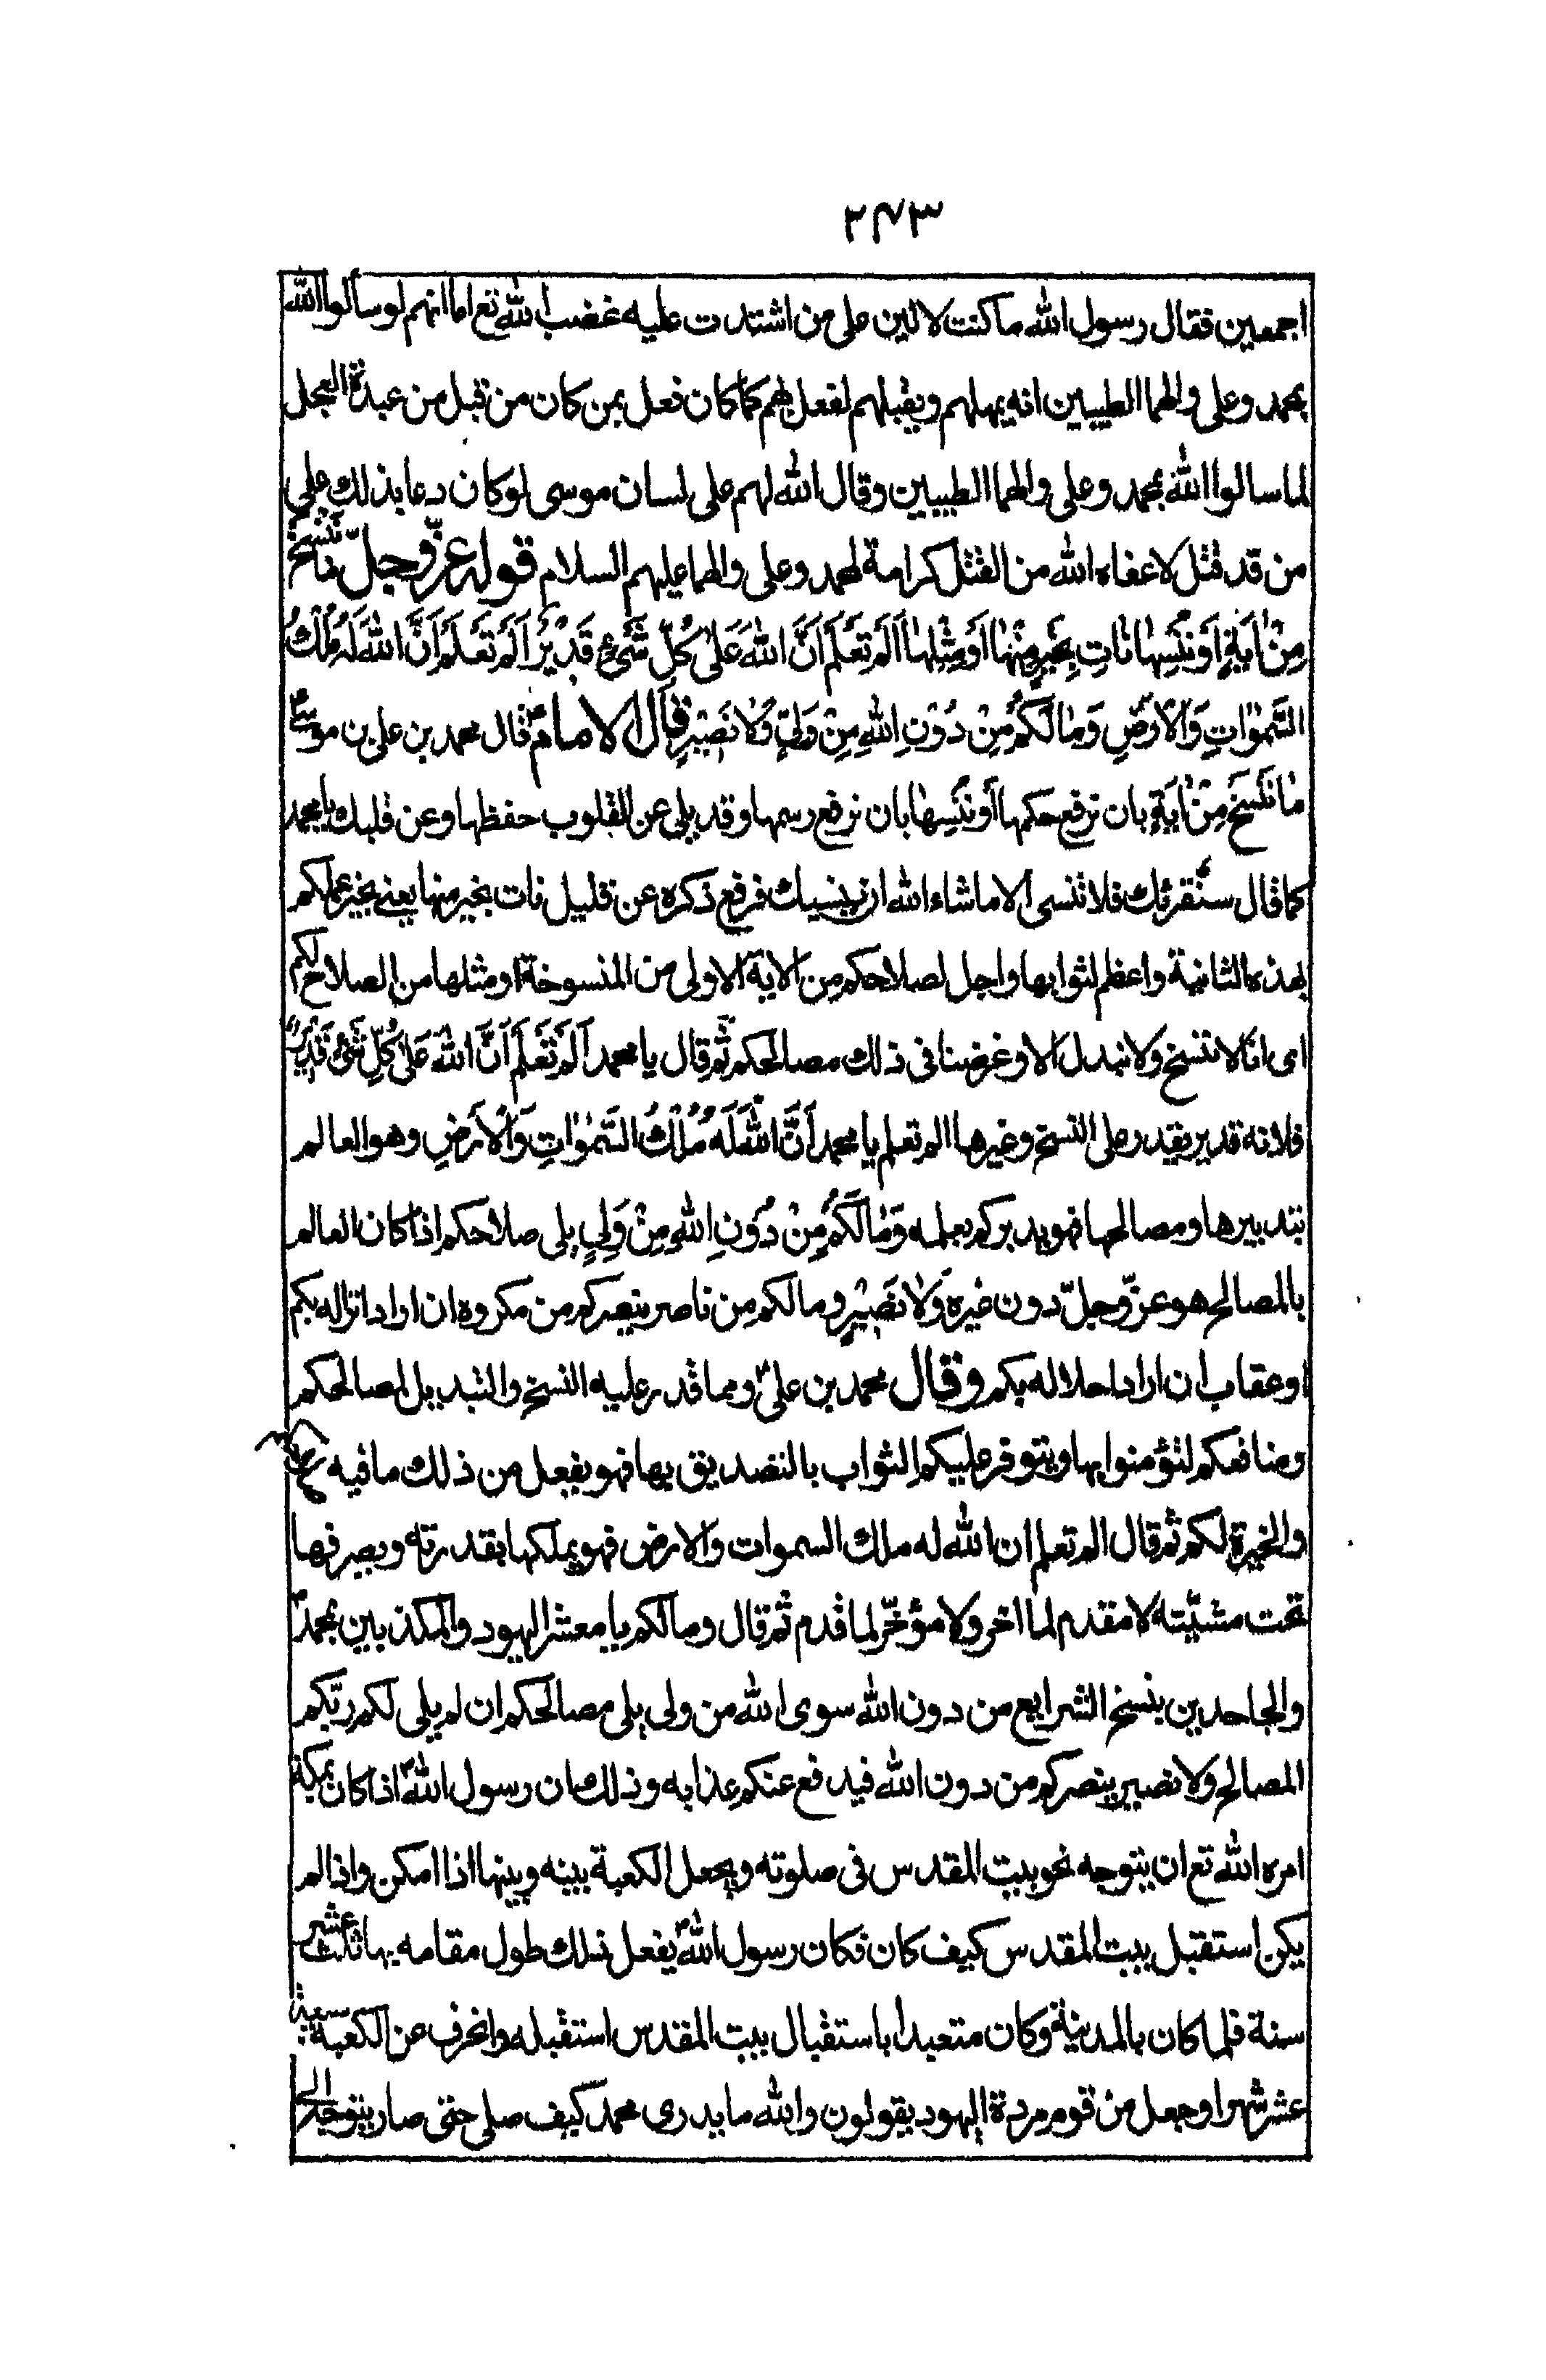 ٢٧٣
اجمعين فقال رسول الله ما كنت لا لين على من اشتدت عليه غضب الله تع اما انهم لو سالوا الله
بمحمد وعلى والهما الطيبين انه يمهلهم ويقبلهم لفعل بهم كما كان فعل بمن كان من قبل من عبدة العجل
لما سالوا الله بمحمد وعلى والهما الطيبين وقال الله لهم على لسان موسى لو كان دعا بذلك على
من قد قتل لاعفاه الله من القتل كرامة لمحمد وعلى والهما عليهم السلام قوله عزّ وجلّ ما ننسخ
مِنْ اٰيَةٍ اَوْ نُنْسِهٰا نَاتِ بِخَيْرٍ مِنْهٰا اَوْ مِثْلِهٰا اَلَمْ تَعْلَمْ اَنَّ اللهَ عَلىٰ كُلِّ شَيْءٍ قَدٖيْرٌ اَلَمْ تَعْلَمْ اَنَّ اللهَ لَهُ مُلْكُ
السَّمٰوٰاتِ وَالْاَرْضِ وَمٰا لَكُمْ مِنْ دُوْنِ اللهِ مِنْ وَلِيٍّ وَلٰا نَصٖيْرٍ قال الامام ع قال محمد بن على بن موسى ع
مٰا نَنْسَخْ مِنْ اٰيَةٍ بان نرفع حكمها اَوْ نُنْسِهٰا بان نرفع رسمها وقد بلى عن القلوب حفظها وعن قلبك يا محمد
كما قال سنقرئك فلا تنسى الا ما شاء الله ان ينسيك فرفع ذكره عن قلبك نات بخير منها يعنى بخير عملكم
بهذه الثانية واعظم لثوابها واجل لصلاحكم من الاية الاولى من المنسوخة او مثلها من الصلاح لكم
اى انا لا ننسخ ولا نبدل الا وغرضنا فى ذلك مصالحكم ثم قال يا محمد اَلَمْ تَعْلَمْ اَنَّ اللهَ عَلىٰ كُلِّ شَيْءٍ قَدٖيْرٌ
فلانه قدير يقدر على النسخ وغيرها الم تعلم يا محمد اَنَّ اللهَ لَهُ مُلْكُ السَّمٰوٰاتِ وَالْاَرْضِ وهو العالم
بتدبيرها ومصالحها فهو يدبركم بعلمه وَمٰا لَكُمْ مِنْ دُوْنِ اللهِ مِنْ وَلِيٍّ يلى صلاحكم اذا كان العالم
بالمصالح هو عزّ وجلّ دون غيره وَلٰا نَصٖيْرٍ وما لكم من ناصر ينصركم من مكروه ان اراد انزاله بكم
او عقاب ان اراد احلاله بكم وقال محمد بن على ع ومما قدر عليه النسخ والتبديل لمصالحكم
ومنافعكم لتؤمنوا بها ويتوفر عليكم الثواب بالتصديق بها فهو يفعل من ذلك ما فيه
والخيرة لكم ثم قال الم تعلم ان الله له ملك السموات والارض فهو يملكها بقدرته ويصرفها
تحت مشيّته لا مقدم لما اخر ولا مؤخّر لما قدم ثم قال وما لكم يا معشر اليهود والمكذبين بمحمد
والجاحدين بنسخ الشرايع من دون الله سوى الله من ولى يلى مصالحكم ان لم يلى لكم ربّكم
المصالح ولا نصير ينصركم من دون الله فيدفع عنكم عذابه وذلك ان رسول الله اذا كان بمكة
امره الله تع ان يتوجه نحو بيت المقدس فى صلوته ويجعل الكعبة بينه وبينها اذا امكن واذا لم
يكن استقبل بيت المقدس كيف كان فكان رسول الله يفعل ذلك طول مقامه بها ثلث عشر
سنة فلما كان بالمدينة وكان متعبدا باستقبال بيت المقدس استقبله وانحرف عن الكعبة سبعة
عشر شهرا وجعل من قوم مردة اليهود يقولون والله ما يدرى محمد كيف صلى حتى صار يتوجه الى